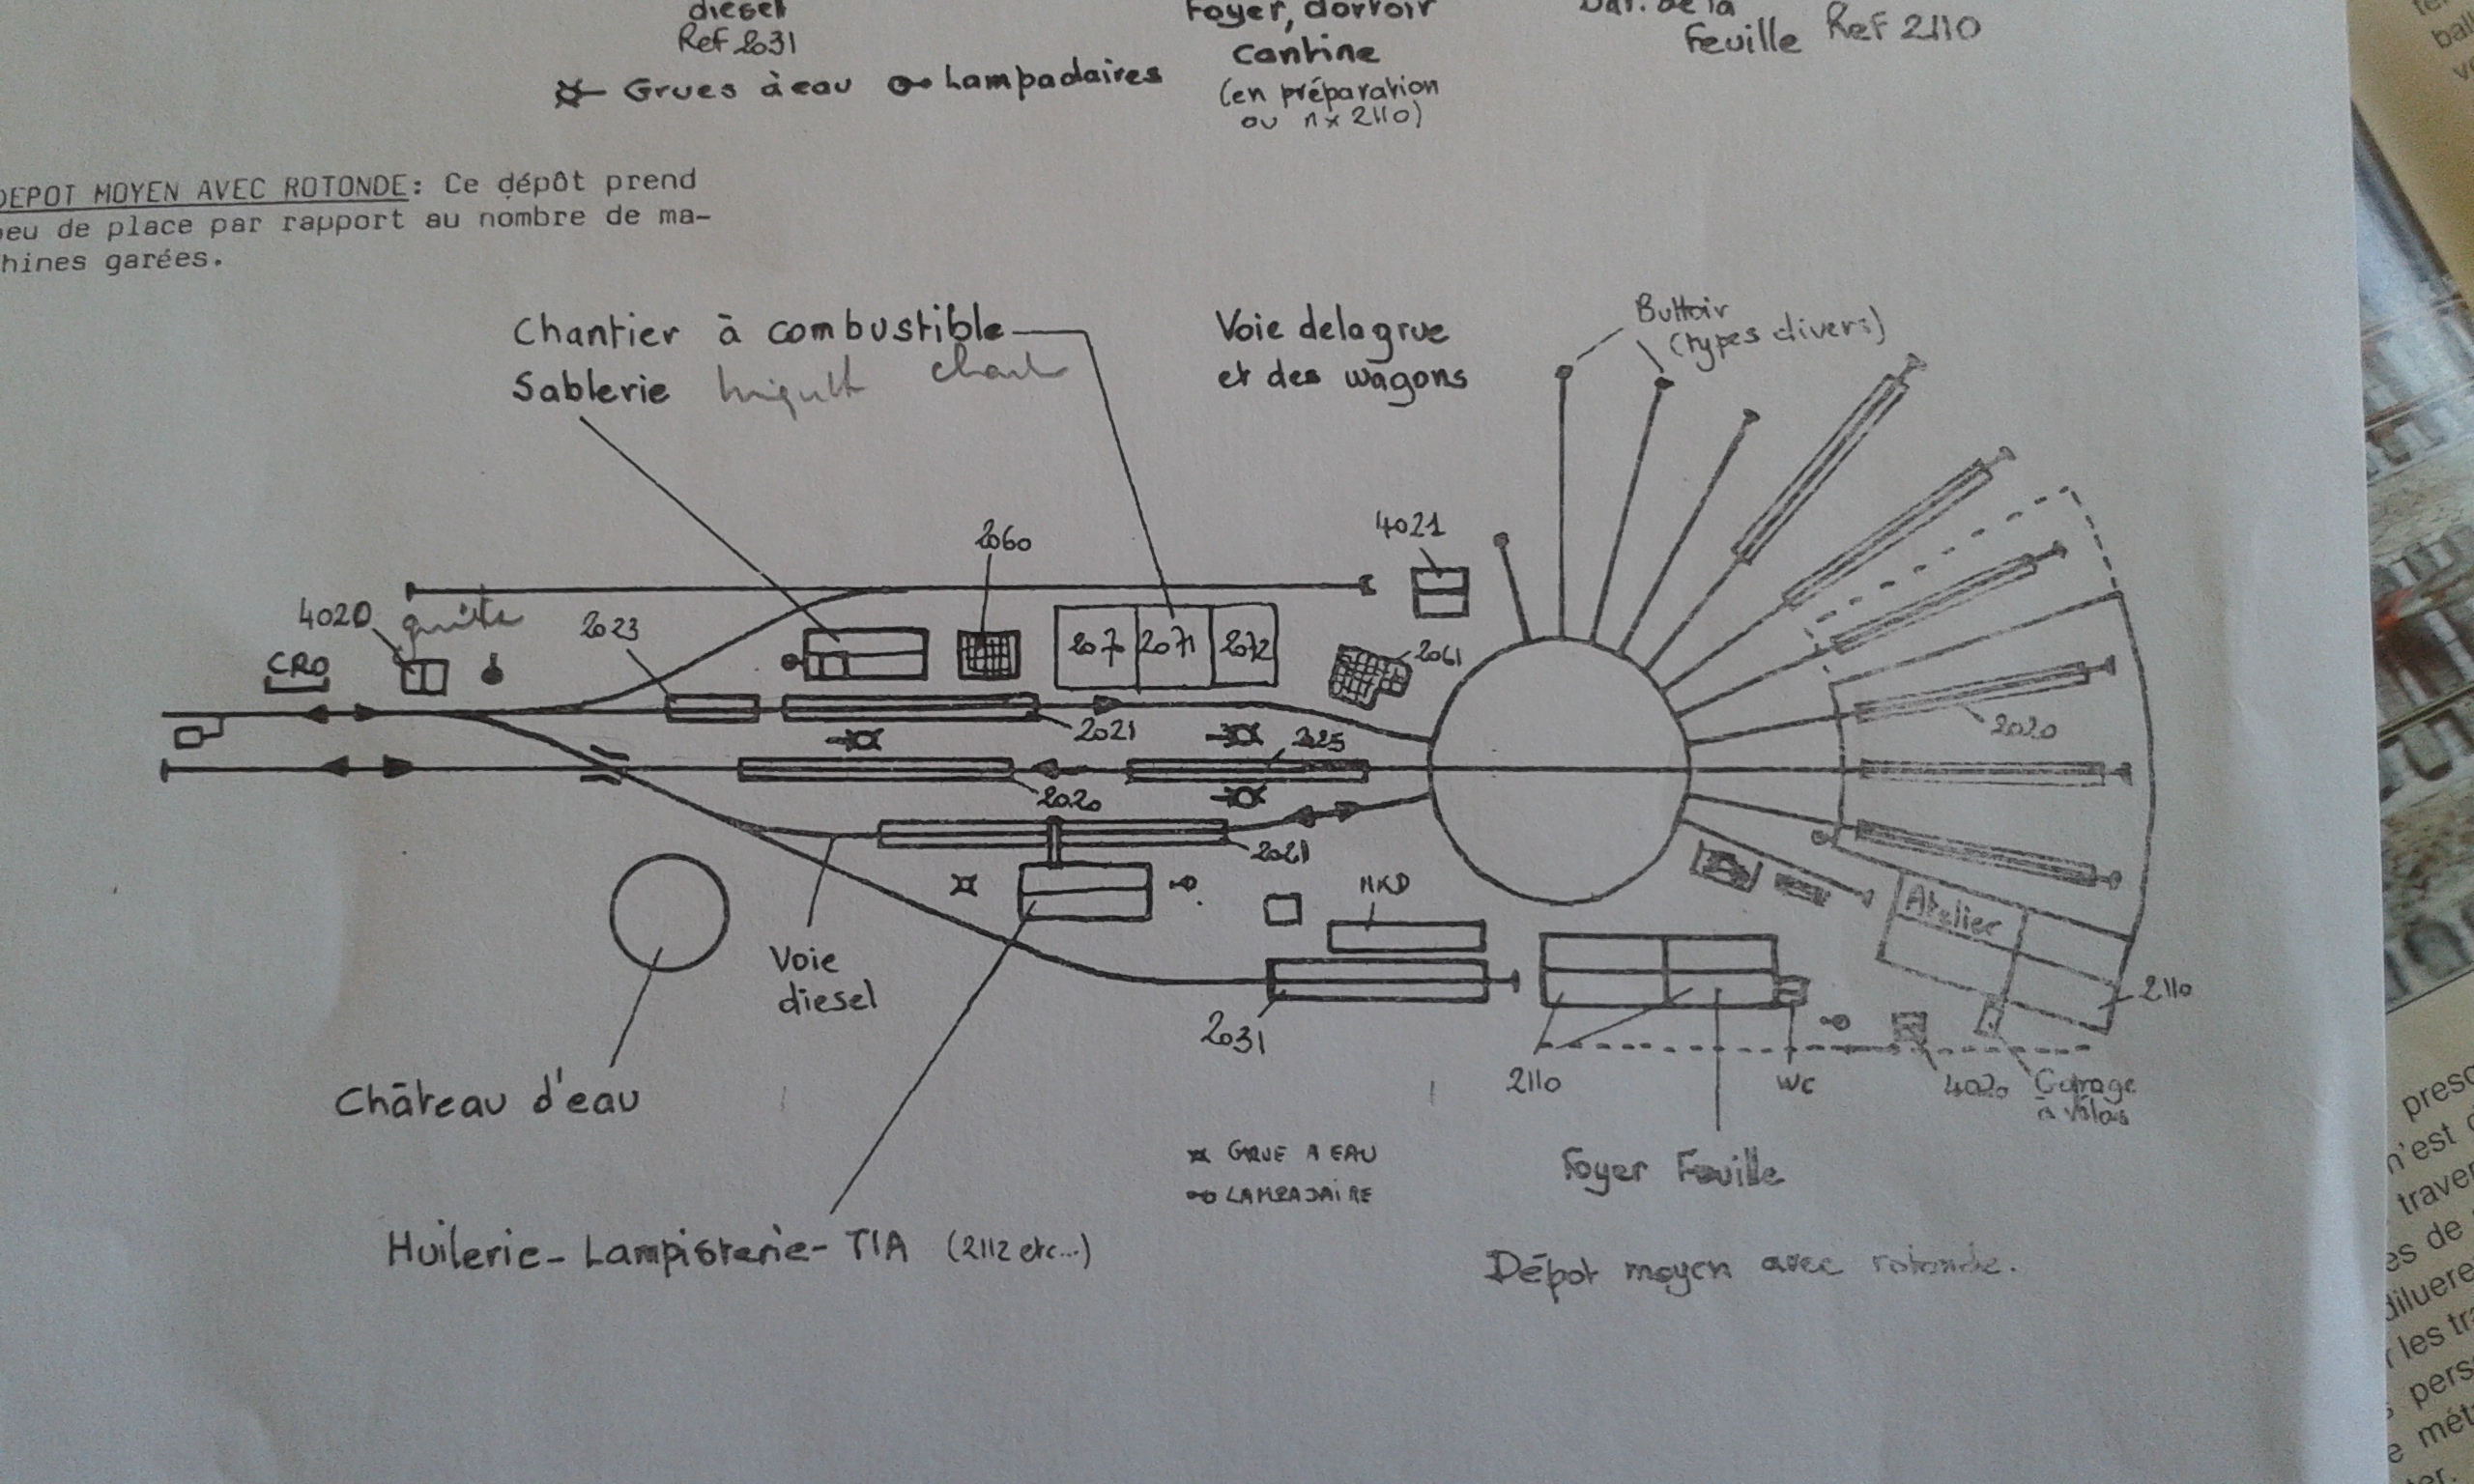 diesel
Ref 2031
Foyer, dortoir
cantine
(en préparation
ou n x 2110)
Bat. de la
Feuille Ref 2110
Grues à eau
Lampadaires
DEPOT MOYEN AVEC ROTONDE: Ce dépôt prend
peu de place par rapport au nombre de ma-
hines garées.
Chantier à combustible
Sablerie
Voie de la grue
et des wagons
Buttoir
(types divers)
2060
4021
4020
2023
CRO
2070 2071 2072
2061
2021
2020
2020
2021
Voie
diesel
HKD
Atelier
2110
2031
2110
WC
4020
Garage
à vélos
Château d'eau
GRUE A EAU
LAMPADAIRE
Foyer Feuille
Huilerie - Lampisterie - TIA (2112 etc...)
Dépot moyen avec rotonde.
presc
n'est
traver
es de
diluere
les tra
pers
e mét